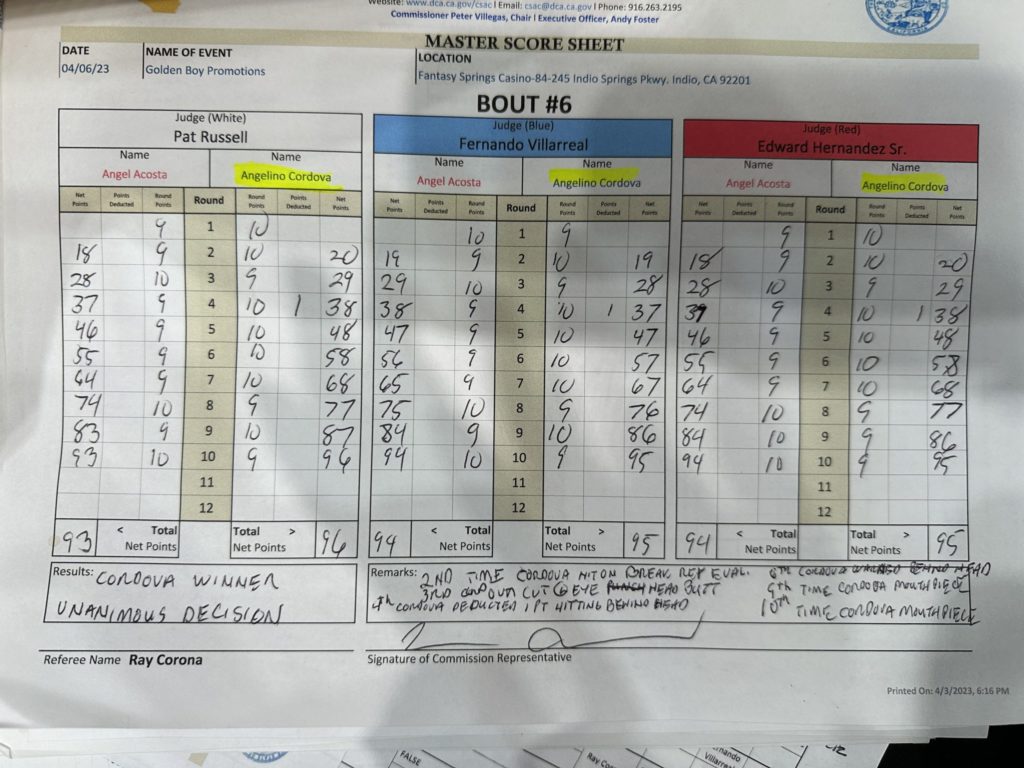 Website: www.dca.ca.gov/csac | Email: csac@dca.ca.gov | Phone: 916.263.2195
Commissioner Peter Villegas, Chair | Executive Officer, Andy Foster
CALIFORNIA
MASTER SCORE SHEET
DATE NAME OF EVENT LOCATION
04/06/23 Golden Boy Promotions Fantasy Springs Casino-84-245 Indio Springs Pkwy. Indio, CA 92201
BOUT #6
Judge (White) Judge (Blue) Judge (Red)
Pat Russell Fernando Villarreal Edward Hernandez Sr.
Name Name Name Name Name Name
Angel Acosta Angelino Cordova Angel Acosta Angelino Cordova Angel Acosta Angelino Cordova
Net Points Points Deducted Round Points Round Round Points Points Deducted Net Points Net Points Points Deducted Round Points Round Round Points Points Deducted Net Points Net Points Points Deducted Round Points Round Round Points Points Deducted Net Points
9 1 10 10 1 9 9 1 10
18 9 2 10 20 19 9 2 10 19 18 9 2 10 20
28 10 3 9 29 29 10 3 9 28 28 10 3 9 29
37 9 4 10 1 38 38 9 4 10 1 37 37 9 4 10 1 38
46 9 5 10 48 47 9 5 10 47 46 9 5 10 48
55 9 6 10 58 56 9 6 10 57 55 9 6 10 58
64 9 7 10 68 65 9 7 10 67 64 9 7 10 68
74 10 8 9 77 75 10 8 9 76 74 10 8 9 77
83 9 9 10 87 84 9 9 10 86 84 10 9 9 86
93 10 10 9 96 94 10 10 9 95 94 10 10 9 95
11 11 11
12 12 12
93 < Total Net Points Total > Net Points 96 94 < Total Net Points Total > Net Points 95 94 < Total Net Points Total > Net Points 95
Results: CORDOVA WINNER
UNANIMOUS DECISION
Remarks: 2ND TIME CORDOVA HIT ON BREAK REF EVAL.
3RD CUT EYE PUNCH HEAD BUTT
4th CORDOVA DEDUCTED 1 PT HITTING BEHIND HEAD
8TH CORDOVA WARNED BEHIND HEAD
9th TIME CORDOBA MOUTHPIECE
10TH TIME CORDOVA MOUTHPIECE
Referee Name Ray Corona
Signature of Commission Representative
Printed On: 4/3/2023, 6:16 PM
FALSE